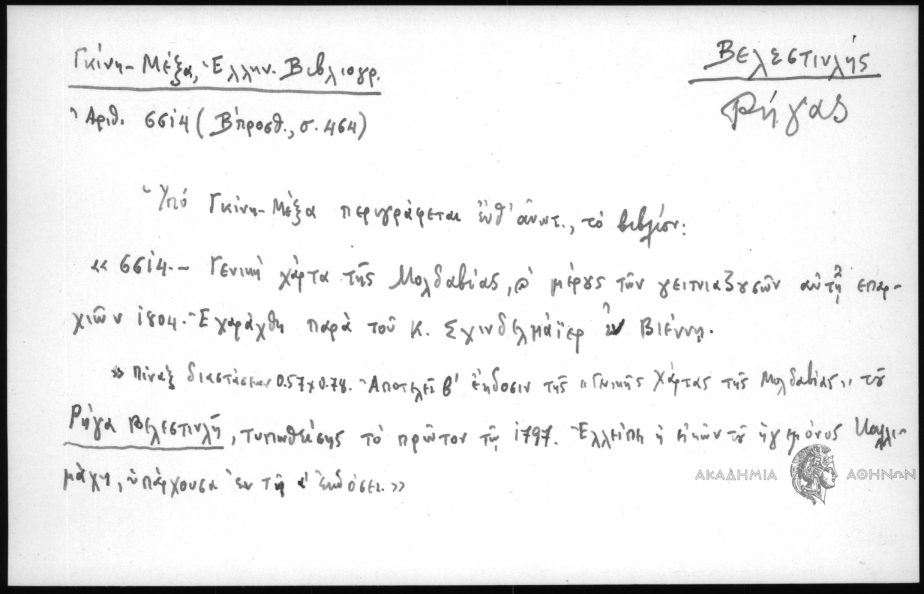 Γκίνη-Μέξα, Ἑλλην. Βιβλιογρ.
Βελεστινλής
Ῥήγας
Ἀριθ. 6614 (Β΄προσθ., σ. 464)
Ὑπό Γκίνη-Μέξα περιγράφεται ἐνθ' ἀνωτ., τό βιβλίον:
«6614.- Γενική χάρτα τῆς Μολδαβίας, μέρους τῶν γειτνιαζουσῶν αὐτῇ ἐπαρ-
χιῶν 1804. Ἐχαράχθη παρά τοῦ Κ. Σχινδελμάϊερ ἐν Βιέννῃ.
» Πίναξ διαστάσεων 0.57×0.78. Ἀποτελεῖ β' ἔκδοσιν τῆς «Γενικῆς Χάρτας τῆς Μολδαβίας» τοῦ
Ρήγα Βελεστινλῆ, τυπωθείσης τό πρῶτον τῷ 1797. Ἐλλείπει ἡ εἰκών τοῦ ἡγεμόνος Καλλι-
μάχη, ὑπάρχουσα ἐν τῇ α' ἐκδόσει.»
ΑΚΑΔΗΜΙΑ ΑΘΗΝΩΝ